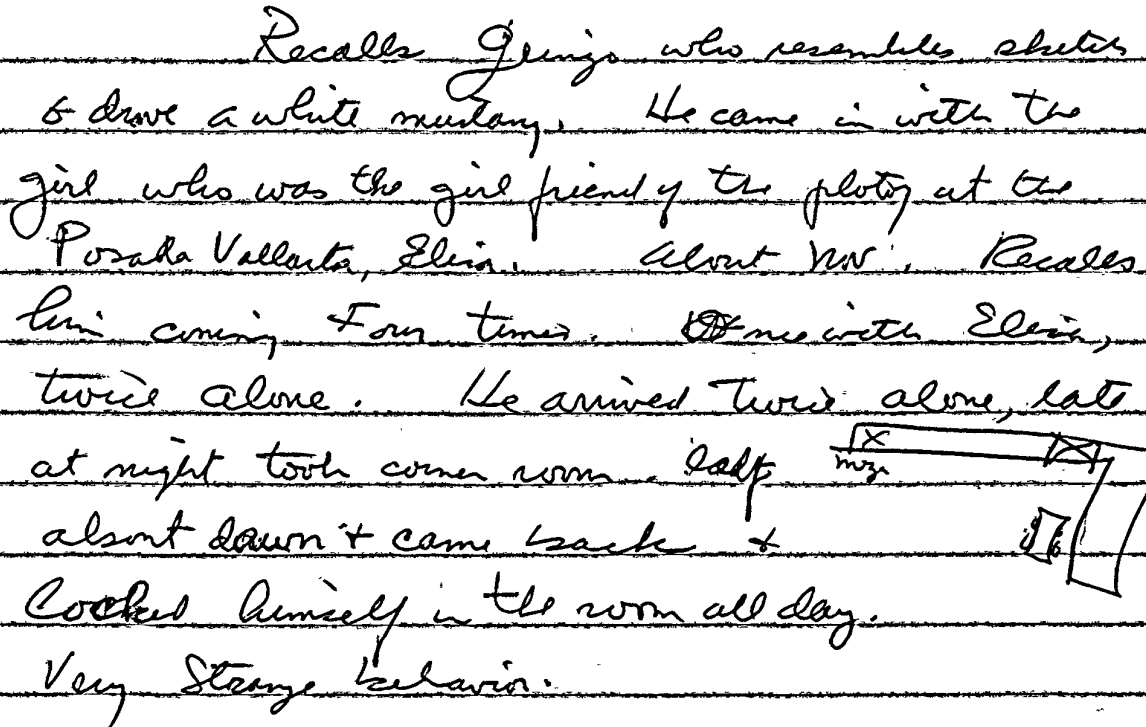 Recalls Gringo who resembles sketch
& drove a white mustang. He came in with the
girl who was the girl friend of the photog at the
Posada Vallarta, Elisa. About Nov. Recalls
him coming Four times. Once with Elisa,
twice alone. He arrived Twice alone, late
at night took corner room. left
about dawn & came back &
Locked himself in the room all day.
Very Strange behavior.